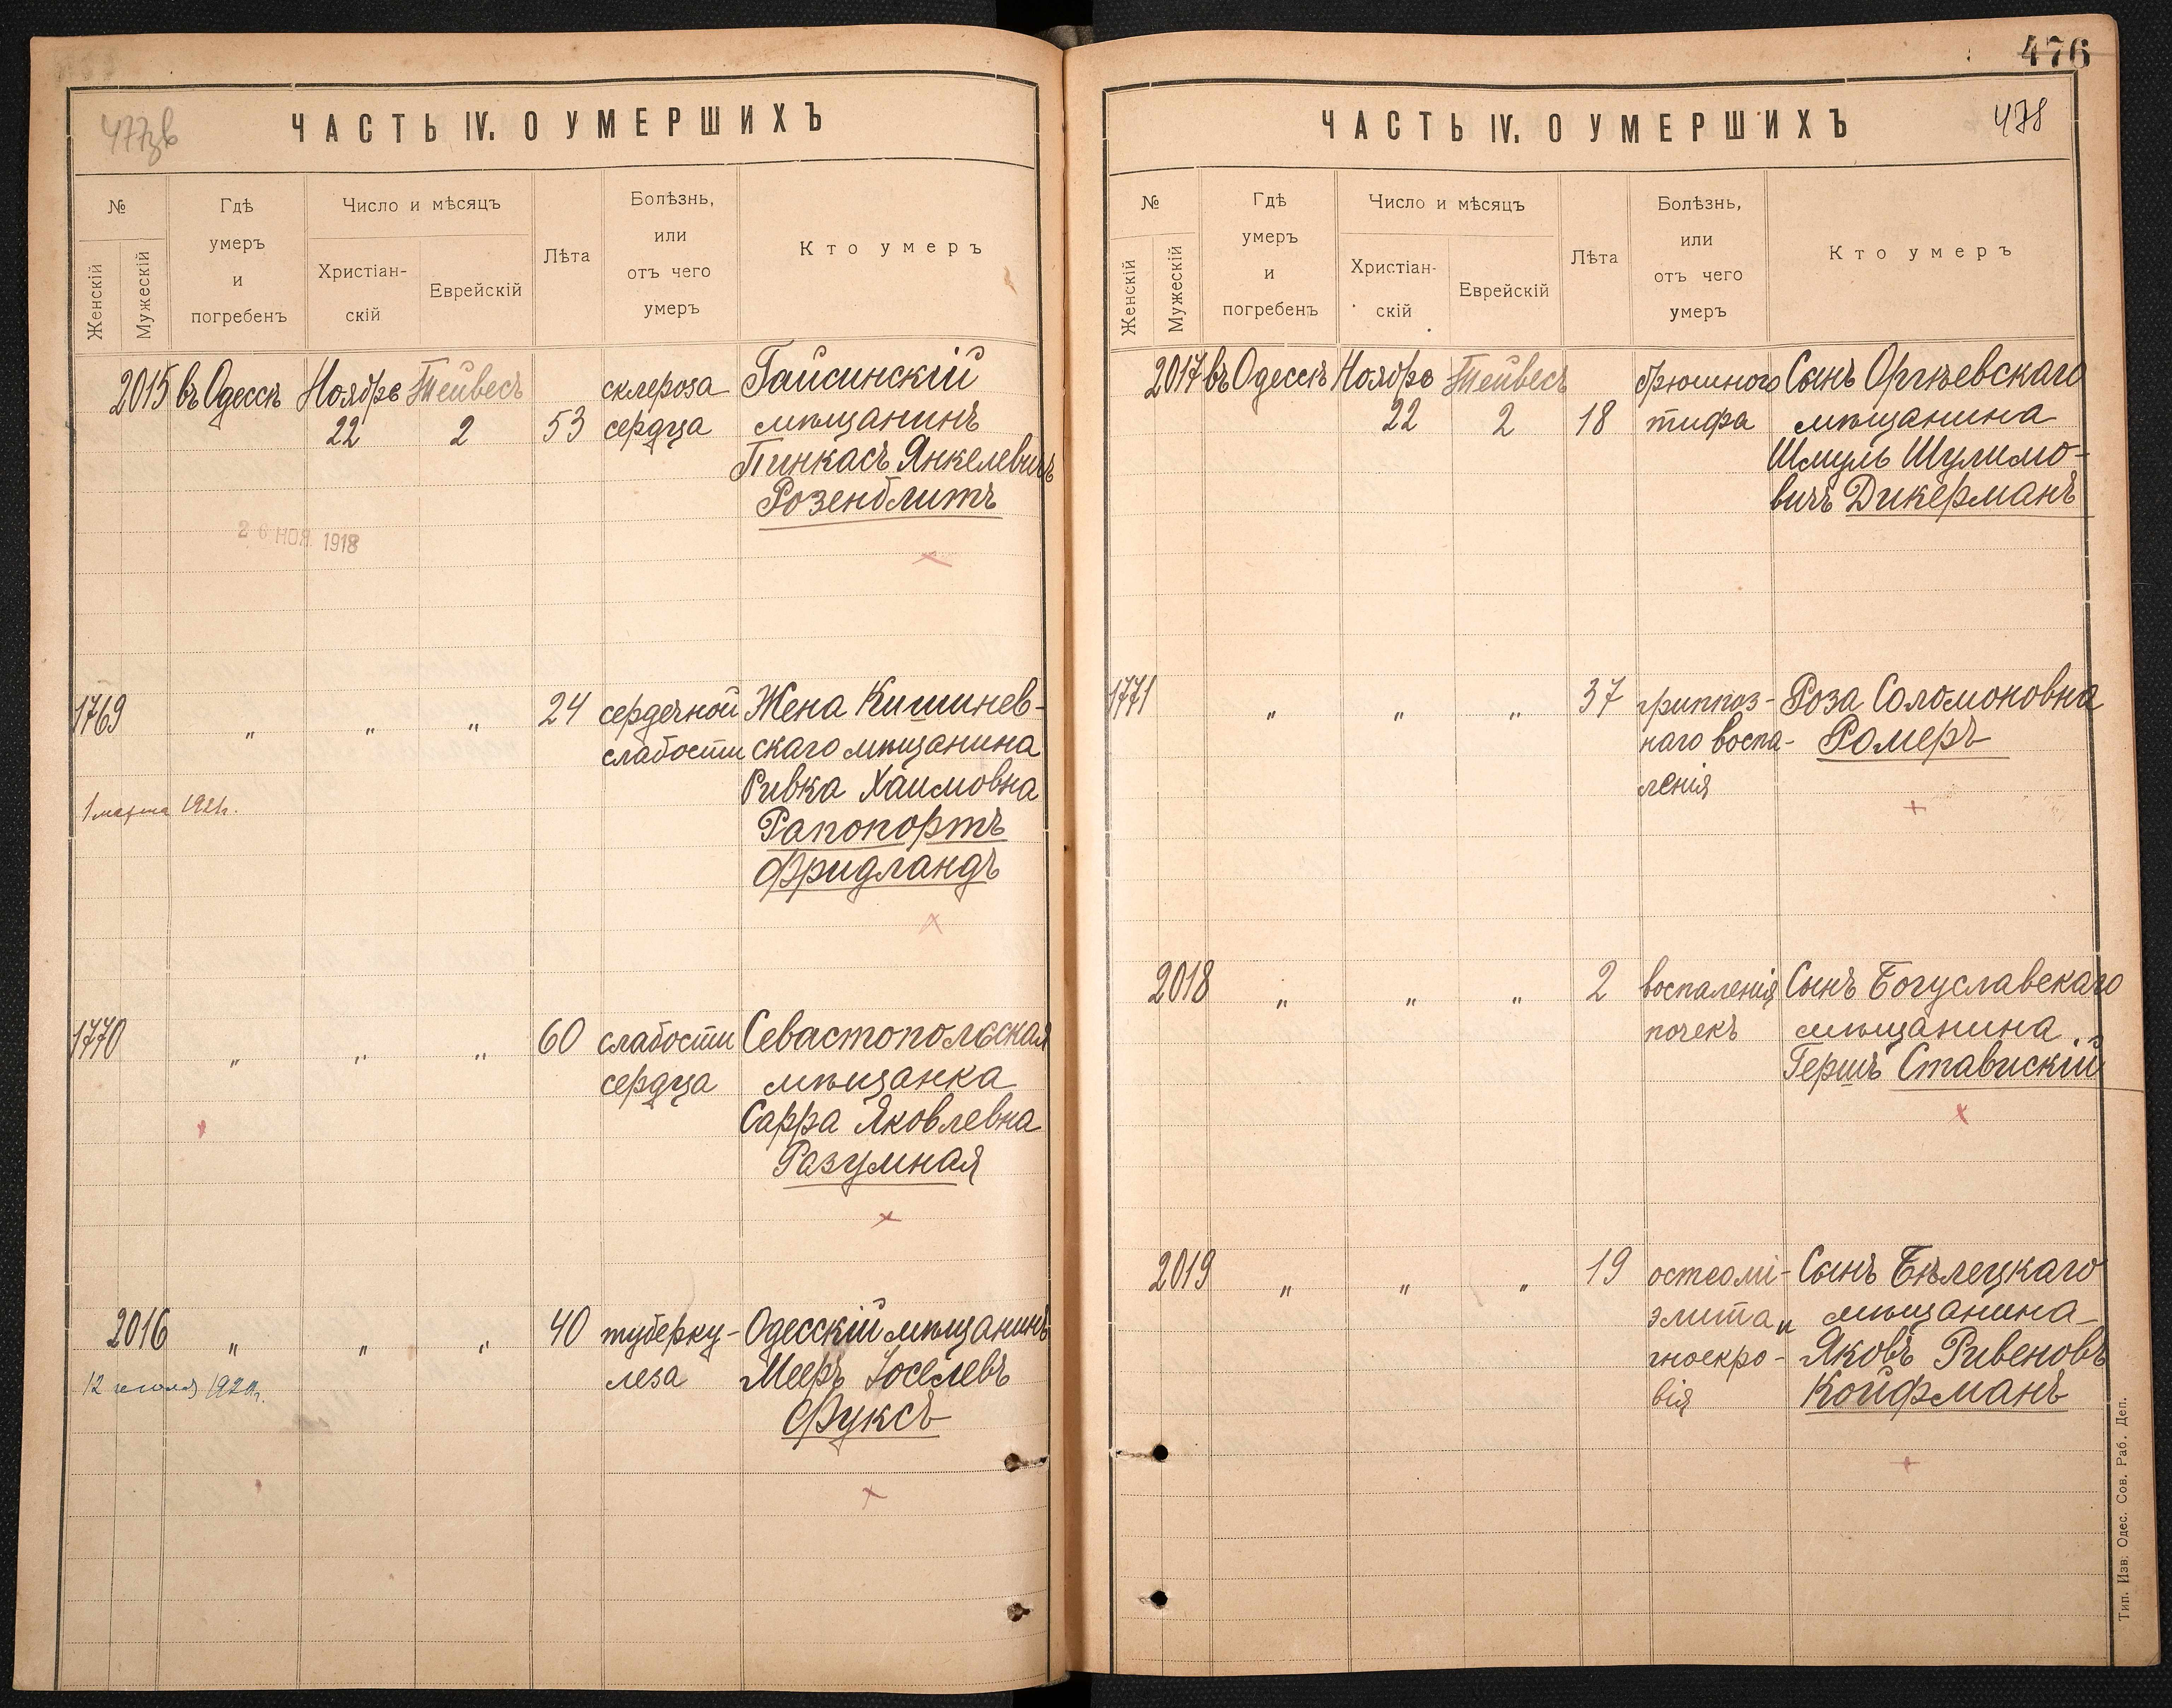 477зв
ЧАСТЬ IV. О УМЕРШИХЪ
№
Женскій
Мужескій
Гдѣ
умеръ
и
погребенъ
Число и мѣсяцъ
Христіан-
скій
Еврейскій
Лѣта
Болѣзнь,
или
отъ чего
умеръ
Кто умеръ
2015 въ Одессѣ Ноября Тейвесъ склероза Гайсинскій
22 2 53 сердца мѣщанинъ
Пинкасъ Янкелевичъ
Розенблитъ
26 НОЯ. 1918
1769 " " " 24 сердечной Жена Кишинев-
слабости скаго мѣщанина
Ривка Хаимовна
1 марта 1921г. Рапопортъ
Фридландъ
1770 " " " 60 слабости Севастопольская
сердца мѣщанка
Сарра Яковлевна
Разумная
2016 " " " 40 туберку- Одесскій мѣщанинъ
12 июля леза Мееръ Іоселевъ
Фуксъ
476
478
ЧАСТЬ IV. О УМЕРШИХЪ
№
Женскій
Мужескій
Гдѣ
умеръ
и
погребенъ
Число и мѣсяцъ
Христіан-
скій
Еврейскій
Лѣта
Болѣзнь,
или
отъ чего
умеръ
Кто умеръ
2017 въ Одессѣ Ноября Тейвесъ брюшного Сынъ Оргѣевскаго
22 2 18 тифа мѣщанина
Шмуль Шулимо-
вичъ Дикерманъ
1771 " " " 37 гриппоз- Роза Соломоновна
наго воспа- Ромеръ
ленія
2018 " " " 2 воспаленія Сынъ Богуславскаго
почекъ мѣщанина
Гершъ Ставискій
2019 " " " 19 остеомі- Сынъ Бѣлецкаго
элита и мѣщанина
гноекро- Яковъ Ривеновъ
вія Койфманъ
Тип. Изв. Одес. Сов. Раб. Деп.